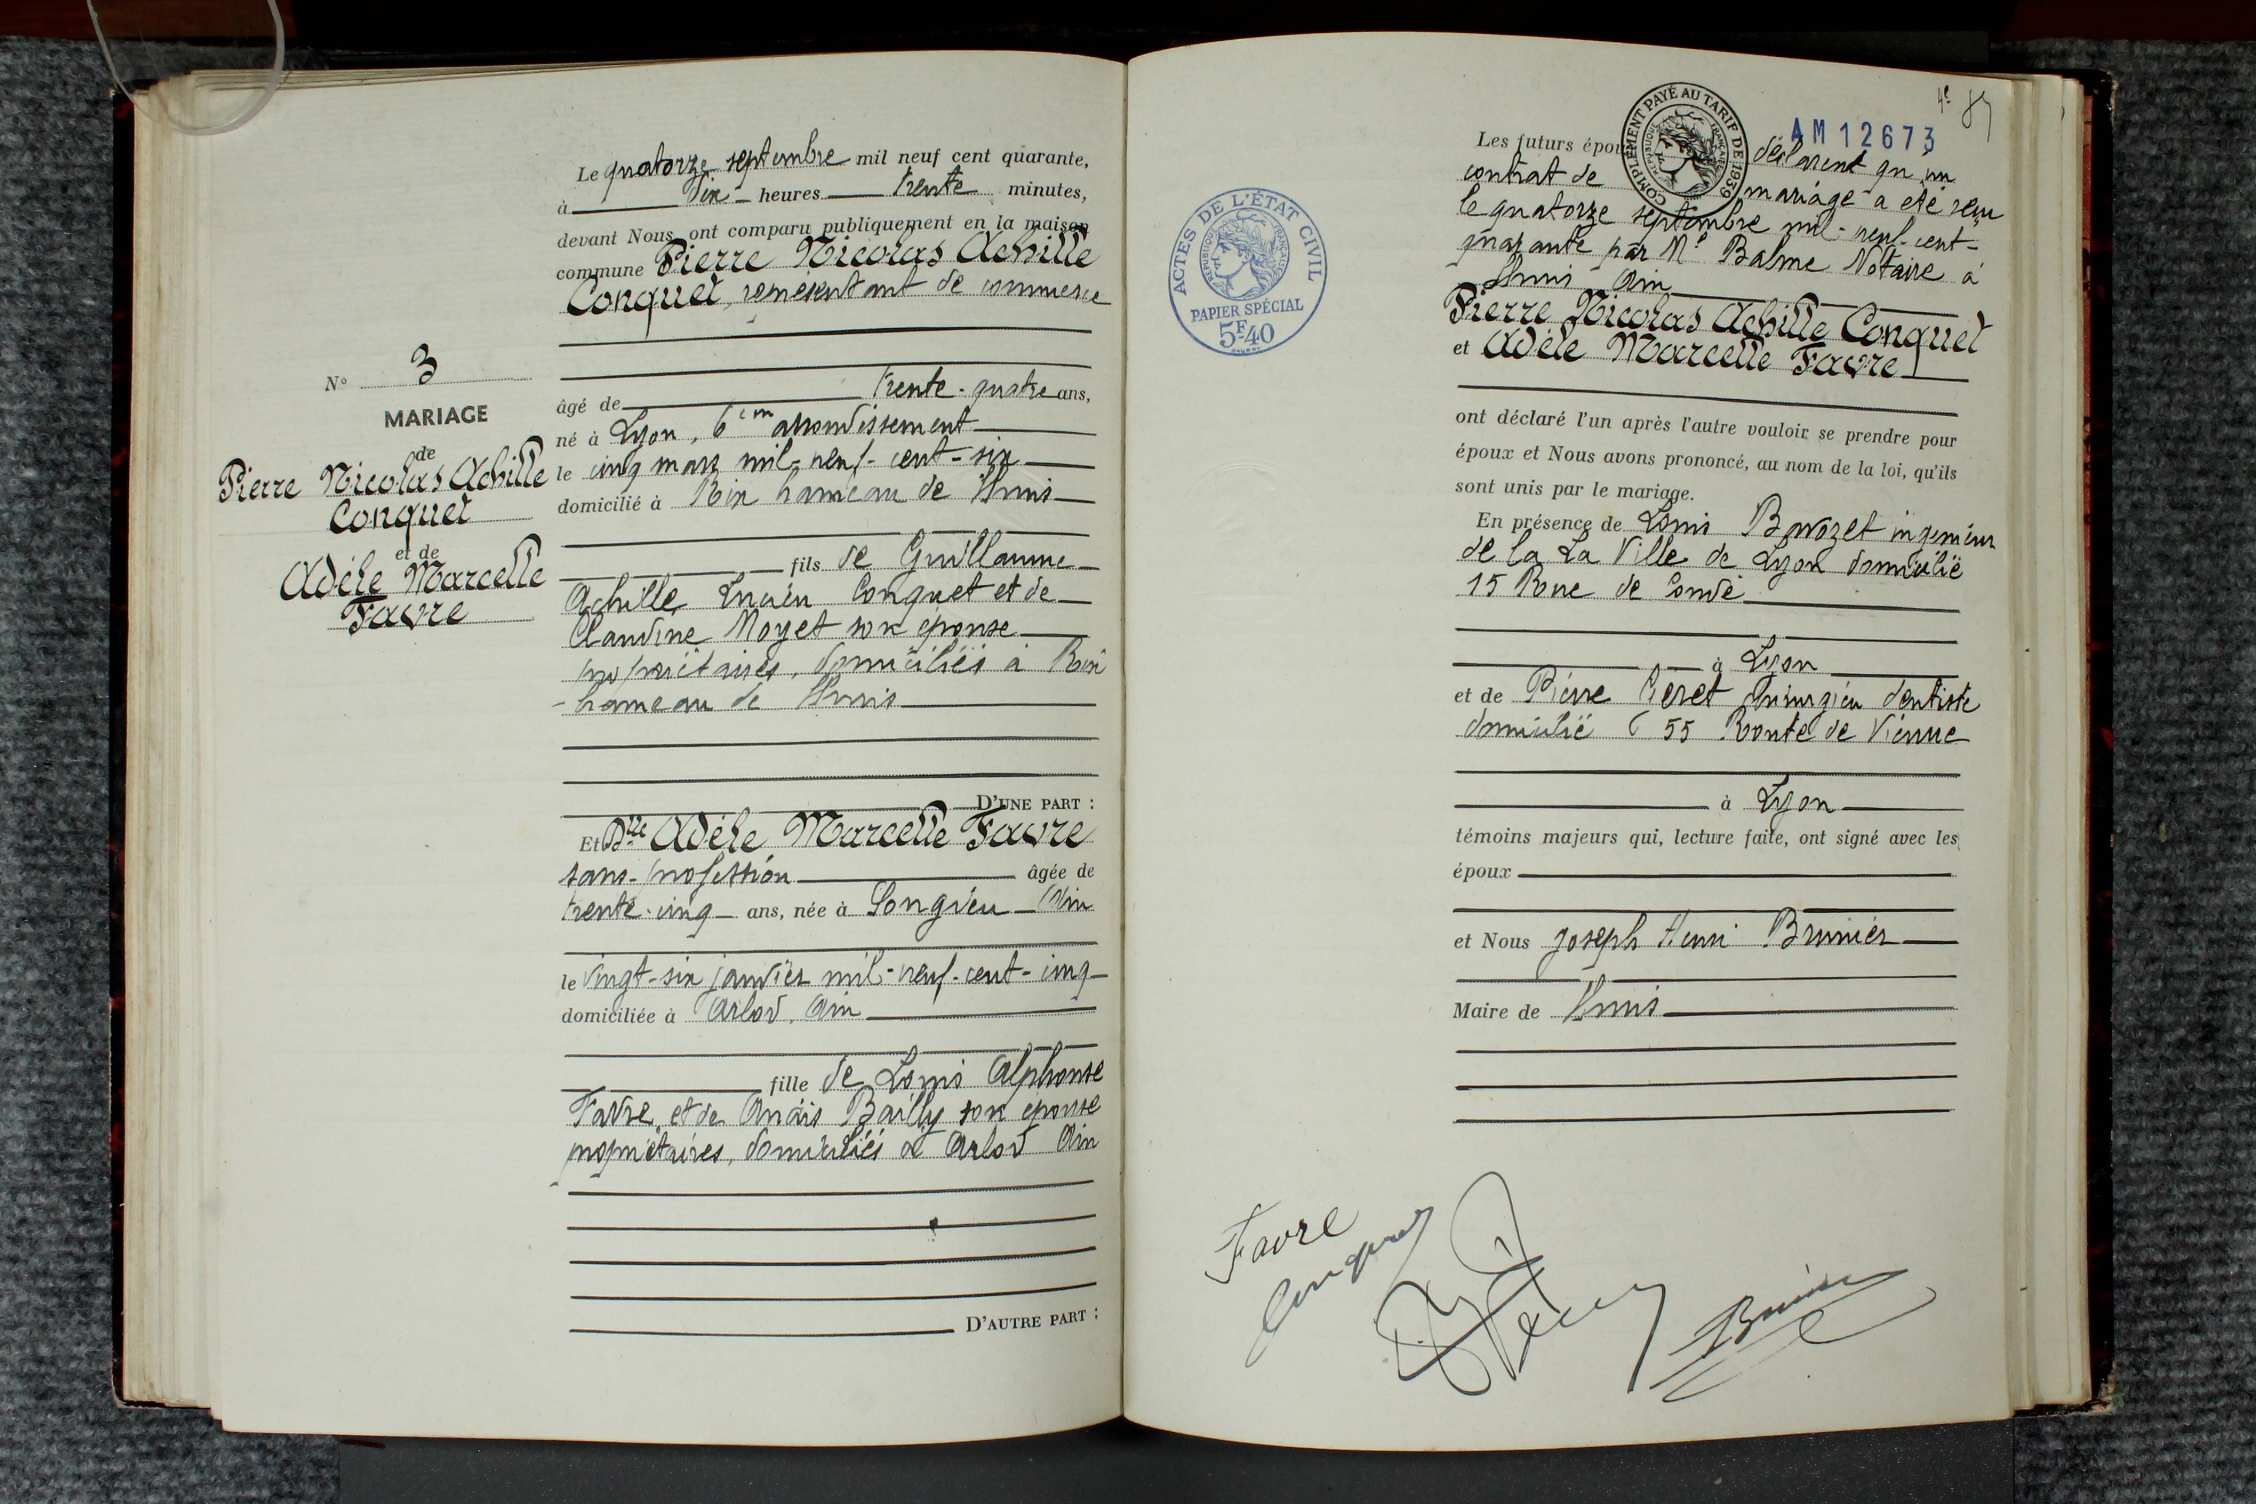 N° 3
MARIAGE
de
Pierre Nicolas Achille
Conquet
et de
Adèle Marcelle
Favre
Le quatorze septembre mil neuf cent quarante,
à dix heures trente minutes,
devant Nous ont comparu publiquement en la maison
commune Pierre Nicolas Achille
Conquet, représentant de commerce
âgé de trente-quatre ans,
né à Lyon, 6em arrondissement
le cinq mars mil-neuf-cent-six
domicilié à Rix hameau de Lhuis
fils de Guillaume
Achille Lucien Conquet et de
Claudine Moyet son épouse
propriétaires, domiciliés à Rix
hameau de Lhuis
D'UNE PART :
Et Dlle Adèle Marcelle Favre
sans-profession âgée de
trente-cinq ans, née à Songieu Ain
le vingt-six janvier mil-neuf-cent-cinq
domiciliée à Arlod. Ain
fille de Louis Alphonse
Favre, et de Anaïs Bailly son épouse
propriétaires, domiciliés à Arlod Ain
D'AUTRE PART :
4e 89
AM12673
COMPLÉMENT PAYÉ AU TARIF DE 1939
RÉPUBLIQUE FRANÇAISE
ACTES DE L'ÉTAT CIVIL
RÉPUBLIQUE FRANÇAISE
PAPIER SPÉCIAL
5F40
Les futurs épou déclarent qu'un
contrat de mariage a été reçu
le quatorze septembre mil-neuf-cent-
quarante par Me Balme Notaire à
Lhuis Ain
Pierre Nicolas Achille Conquet
et Adèle Marcelle Favre
ont déclaré l'un après l'autre vouloir se prendre pour
époux et Nous avons prononcé, au nom de la loi, qu'ils
sont unis par le mariage.
En présence de Louis ingénieur
de la La Ville de Lyon domicilié
15 Rue de Condé
à Lyon
et de Pierre chirurgien dentiste
domicilié 55 Route de Vienne
à Lyon
témoins majeurs qui, lecture faite, ont signé avec les
époux
et Nous Joseph Henri Brunier
Maire de Lhuis
Favre
Conquet
Brunier